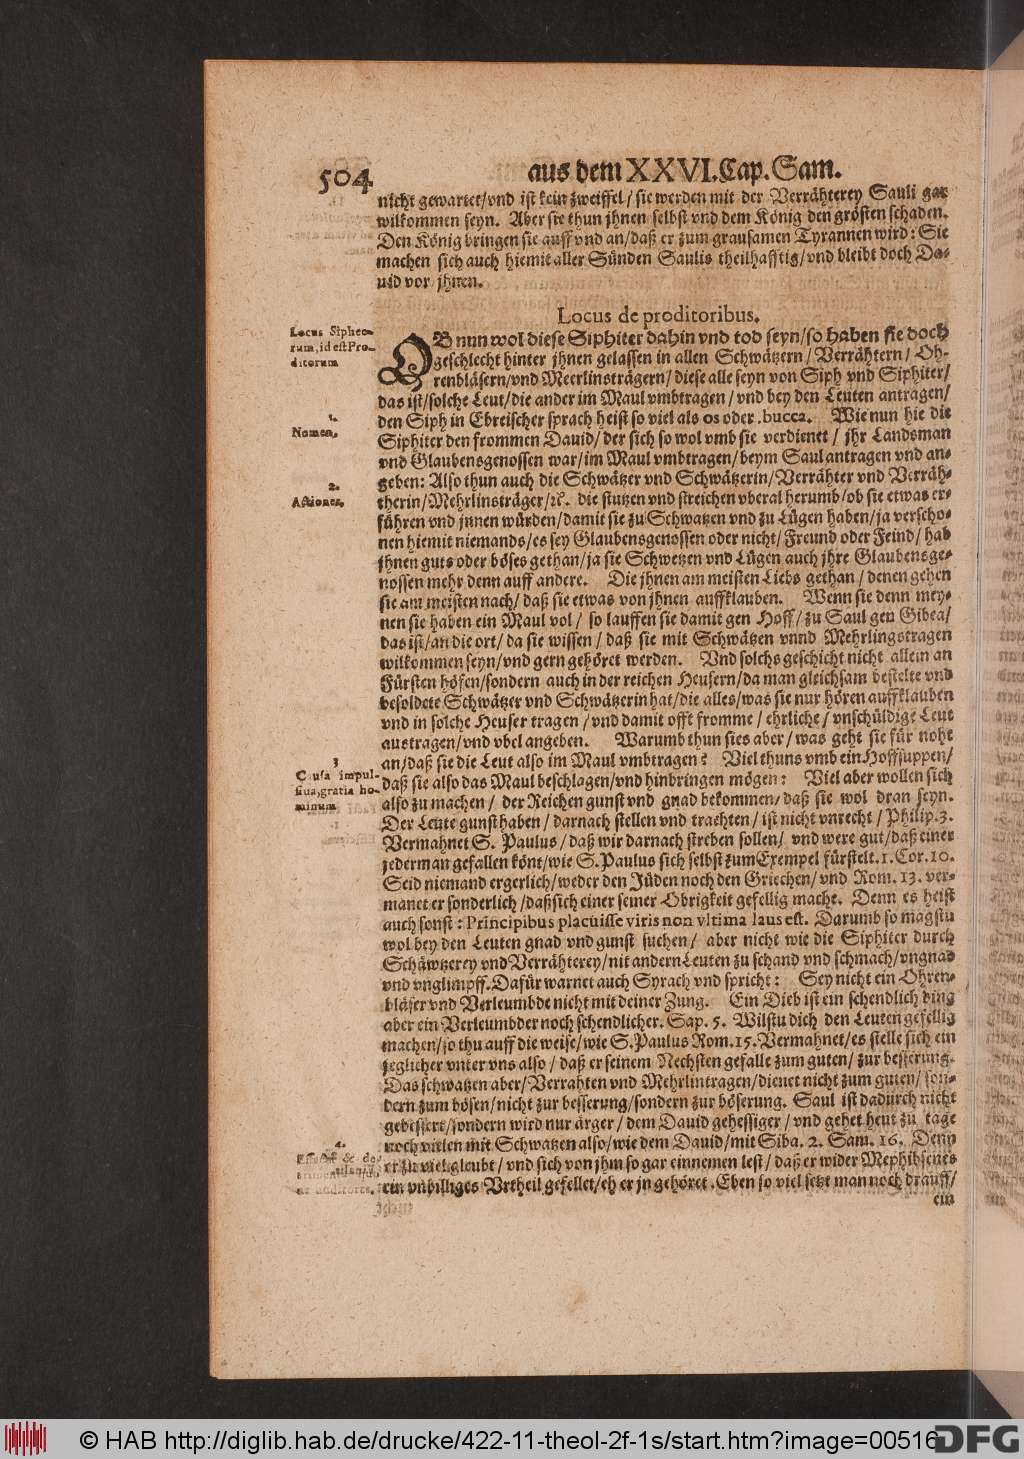 504 aus dem XXVI. Cap. Sam.
nicht gewartet/vnd ist kein zweiffel/ sie werden mit der Verrähterey Sauli gar
wilkommen seyn. Aber sie thun jhnen selbst vnd dem König den grösten schaden.
Den König bringen sie auff vnd an/daß er zum grausamen Tyrannen wird: Sie
machen sich auch hiemit aller Sünden Saulis theilhafftig/vnd bleibt doch Da-
uid vor jhnen.
Locus de proditoribus.
Locus Sipheo-
rum, id est Pro-
ditorum
OB nun wol diese Siphiter dahin vnd tod seyn/so haben sie doch
geschlecht hinter jhnen gelassen in allen Schwätzern/ Verrähtern/ Oh-
renbläsern/vnd Meerlinsträgern/ diese alle seyn von Siph vnd Siphiter/
das ist/solche Leut/die ander im Maul vmbtragen/ vnd bey den Leuten antragen/
1.
Nomen.
den Siph in Ebreischer sprach heist so viel als os oder bucca. Wie nun hie die
Siphiter den frommen Dauid/ der sich so wol vmb sie verdienet/ jhr Landsman
vnd Glaubensgenossen war/im Maul vmbtragen/beym Saul antragen vnd an-
geben: Also thun auch die Schwätzer vnd Schwätzerin/Verrähter vnd Verräh-
2.
Actiones.
therin/Mehrlinsträger/ꝛc. die stutzen vnd streichen vberal herumb/ob sie etwas er-
führen vnd jnnen würden/damit sie zu Schwatzen vnd zu Lügen haben/ja verscho-
nen hiemit niemands/es sey Glaubensgenossen oder nicht/ Freund oder Feind/ hab
jhnen guts oder böses gethan/ja sie Schwetzen vnd Lügen auch jhre Glaubensge-
nossen mehr denn auff andere. Die jhnen am meisten Liebs gethan/ denen gehen
sie am meisten nach/ daß sie etwas von jhnen auffklauben. Wenn sie denn mey-
nen sie haben ein Maul vol/ so lauffen sie damit gen Hoff/ zu Saul gen Gibea/
das ist/an die ort/ da sie wissen/ daß sie mit Schwätzen vnnd Mehrlingstragen
wilkommen seyn/vnd gern gehöret werden. Vnd solchs geschicht nicht allein an
Fürsten höfen/sondern auch in der reichen Heusern/da man gleichsam bestelte vnd
besoldete Schwätzer vnd Schwätzerin hat/die alles/was sie nur hören auffklauben
vnd in solche Heuser tragen/ vnd damit offt fromme/ ehrliche/ vnschüldige Leut
austragen/vnd vbel angeben. Warumb thun sies aber/ was geht sie für noht
3
Causa impul-
siua, gratia ho-
minum
an/daß sie die Leut also im Maul vmbtragen? Viel thuns vmb ein Hoffsuppen/
daß sie also das Maul beschlagen/vnd hinbringen mögen: Viel aber wollen sich
also zu machen/ der Reichen gunst vnd gnad bekommen/ daß sie wol dran seyn.
Der Leute gunst haben/ darnach stellen vnd trachten/ ist nicht vnrecht/ Philip. 3.
Vermahnet S. Paulus/ daß wir darnach streben sollen/ vnd were gut/daß einer
jederman gefallen könt/wie S. Paulus sich selbst zum Exempel fürstelt. 1. Cor. 10.
Seid niemand ergerlich/weder den Jüden noch den Griechen/ vnd Rom. 13. ver-
manet er sonderlich/daß sich einer seiner Obrigkeit gefellig macht. Denn es heist
auch sonst: Principibus placuisse viris non vltima laus est. Darumb so magstu
wol bey den Leuten gnad vnd gunst suchen/ aber nicht wie die Siphiter durch
Schäwtzerey vnd Verrähterey/nit andern Leuten zu schand vnd schmach/vngnad
vnd vnglimpff. Dafür warnet auch Syrach vnd spricht: Sey nicht ein Ohren-
bläser vnd Verleumbde nicht mit deiner Zung. Ein Dieb ist ein schendlich ding
aber ein Verleumbder noch schendlicher. Sap. 5. Wilstu dich den Leuten gefellig
machen/so thu auff die weise/wie S. Paulus Rom. 15. Vermahnet/es stelle sich ein
jeglicher vnter vns also/ daß er seinem Nechsten gefalle zum guten/ zur besserung.
Das schwatzen aber/Verrahten vnd Mehrlintragen/dienet nicht zum guten/ son-
dern zum bösen/nicht zur besserung/sondern zur böserung. Saul ist dadurch nicht
gebessert/sondern wird nur ärger/ dem Dauid gehessiger/ vnd gehet heut zu tage
4.
noch vielen mit Schwatzen also/ wie dem Dauid/mit Siba. 2. Sam. 16. Denn
er zu viel gleubt/ vnd sich von jhm so gar einnemen lest/ daß er wider Mephiboseths
ein vnbilliges Vrtheil gefellet/eh er jn gehöret. Eben so viel setzt man noch drauff/
ein
© HAB http://diglib.hab.de/drucke/422-11-theol-2f-1s/start.htm?image=00516
DFG